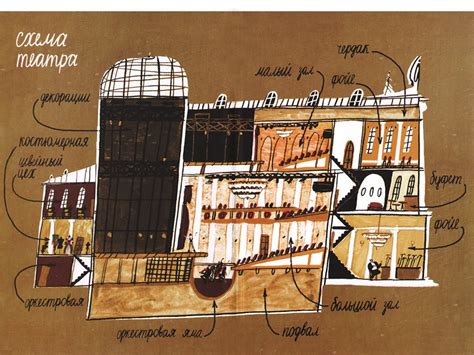 схема
театра
чердак
малый зал
фойе
декорации
костюмерная
швейный
цех
буфет
фойе
оркестровая
оркестровая яма
подвал
большой зал